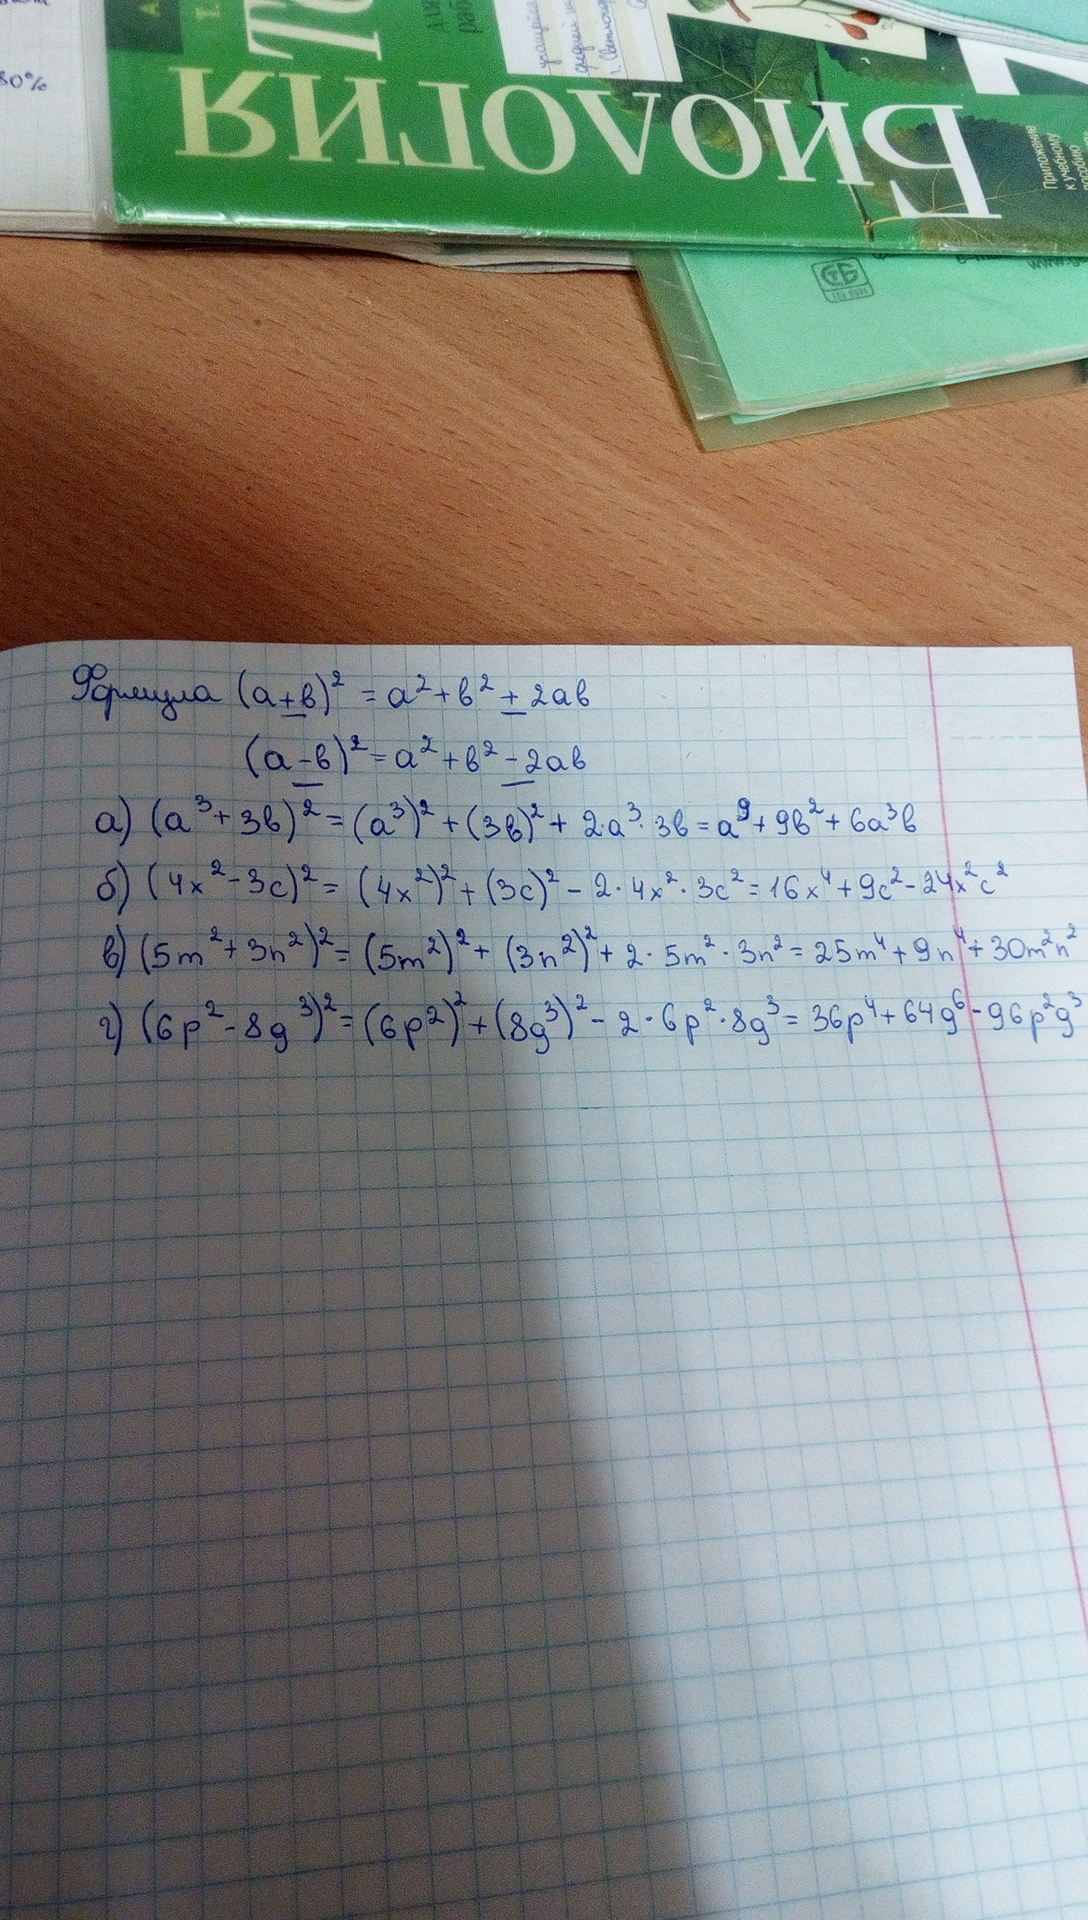 80%
БИОЛОГИЯ
Приложение
к учебному
пособию
СТБ
Формула (a+b)² = a²+b²+2ab
(a-b)²=a²+b²-2ab
а) (a³+3b)²=(a³)²+(3b)²+2·a³·3b=a⁹+9b²+6a³b
б) (4x²-3c)²=(4x²)²+(3c)²-2·4x²·3c²=16x⁴+9c²-24x²c²
в) (5m²+3n²)²=(5m²)²+(3n²)²+2·5m²·3n²=25m⁴+9n⁴+30m²n²
г) (6p²-8g³)²=(6p²)²+(8g³)²-2·6p²·8g³=36p⁴+64g⁶-96p²g³